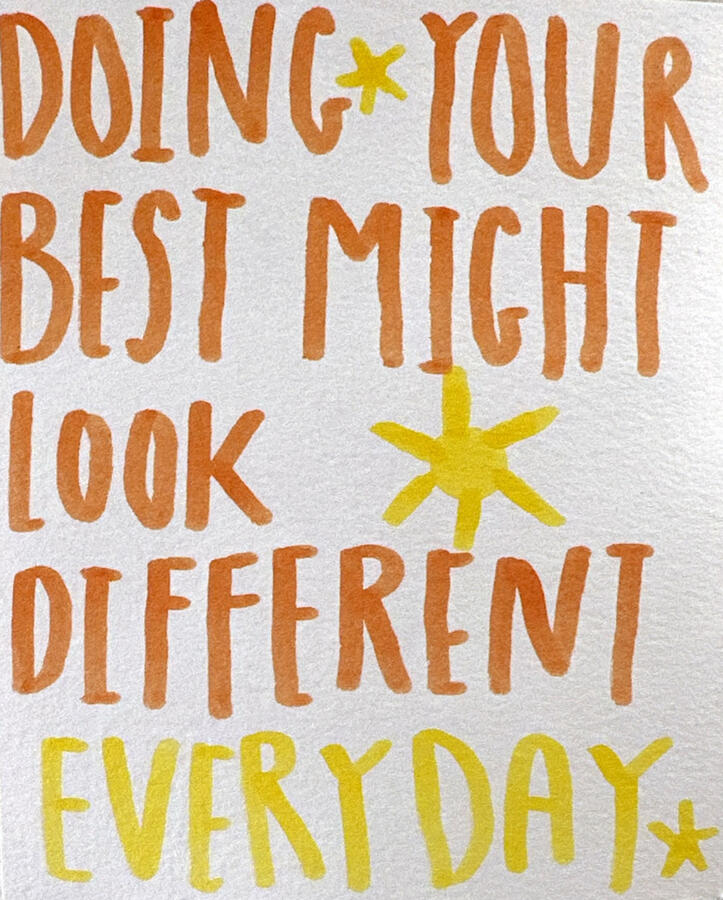 DOING YOUR
BEST MIGHT
LOOK
DIFFERENT
EVERYDAY